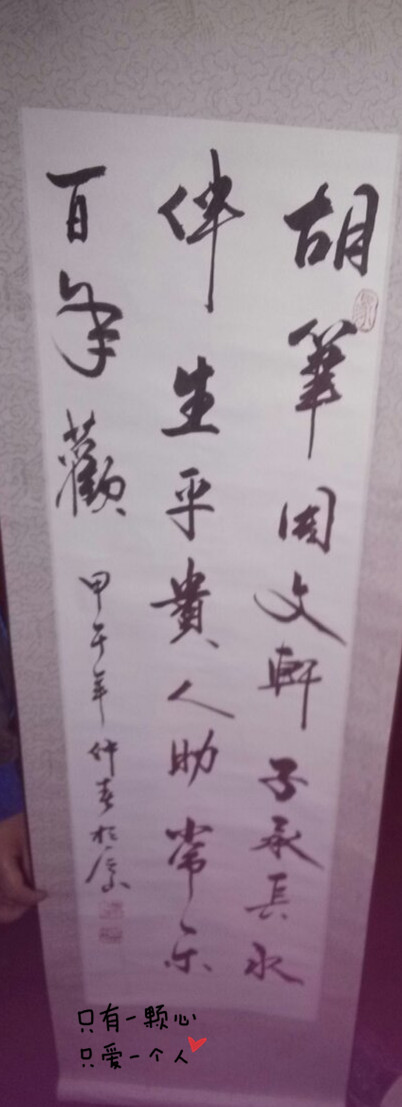 胡筆周文軒子承永
伴生平貴人助常乐
百年觀
甲午年仲春於
只有一颗心
只爱一个人